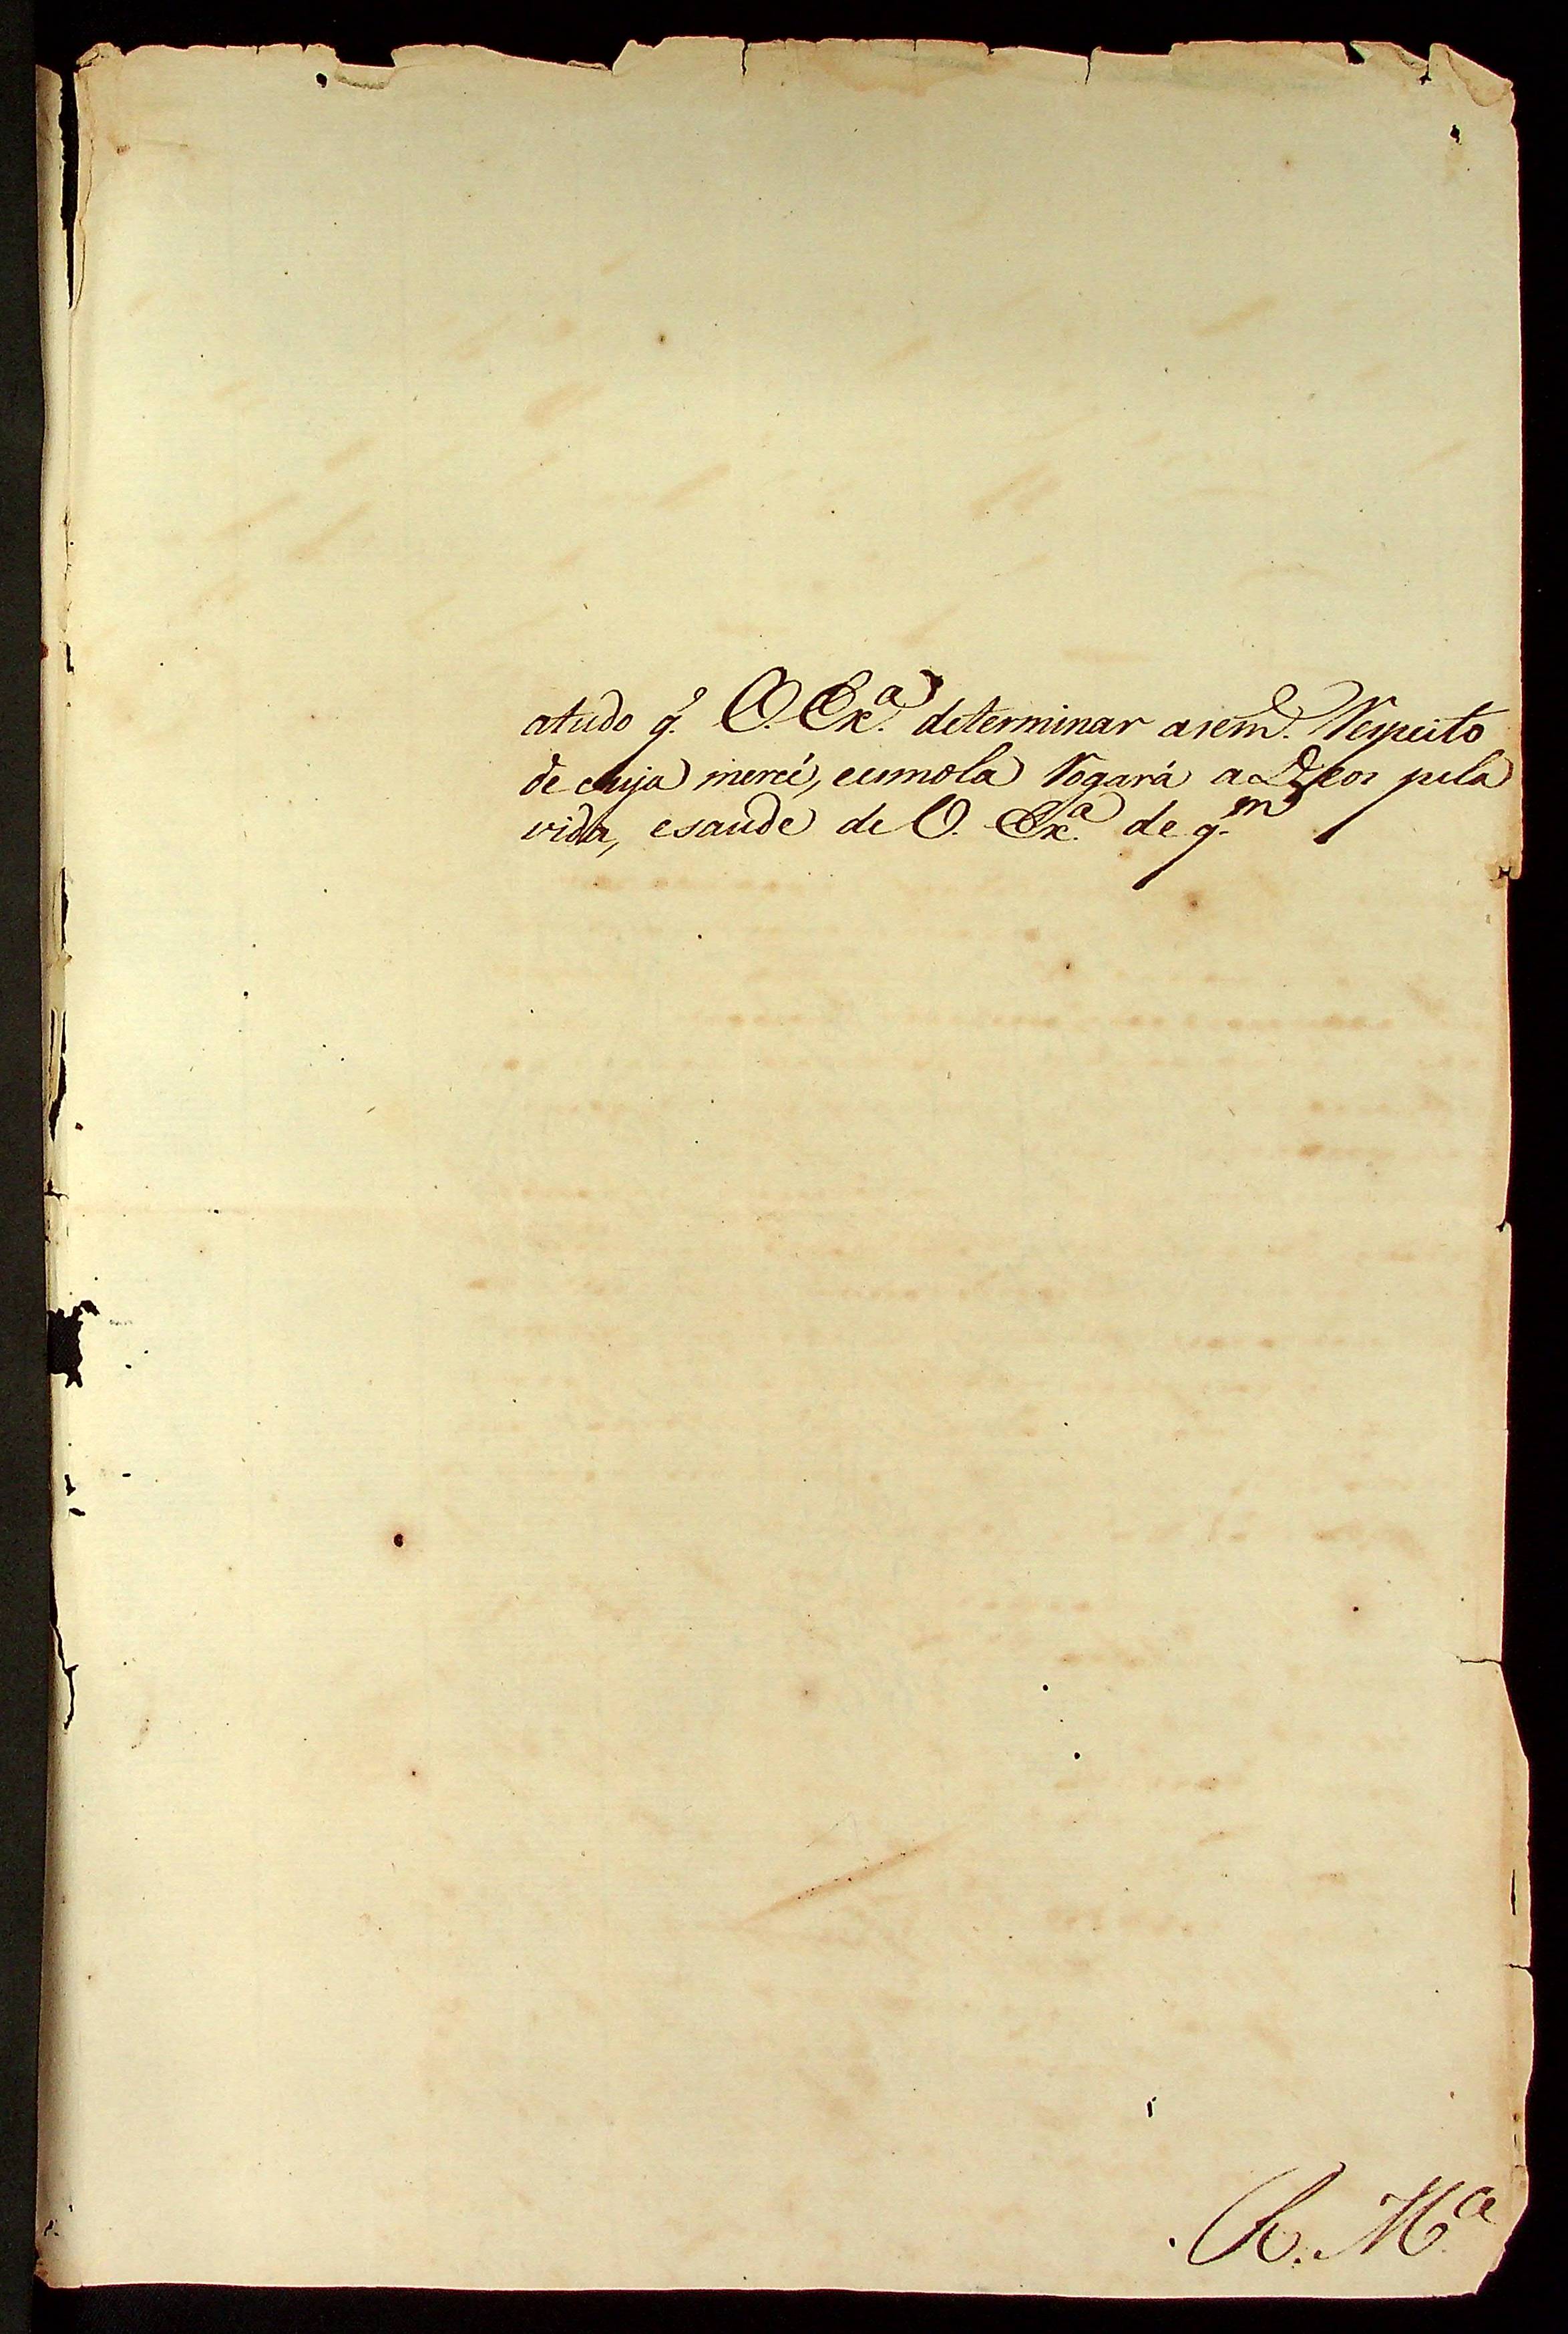 atudo q.ᵉ V. Exª. determinar asem.ᵉ Respeito
de cuja mercê, eesmola Rogará a Deos pela
vida, esaude de V. Exª. de q.ᵐ
E. R. M.ᶜᵉ